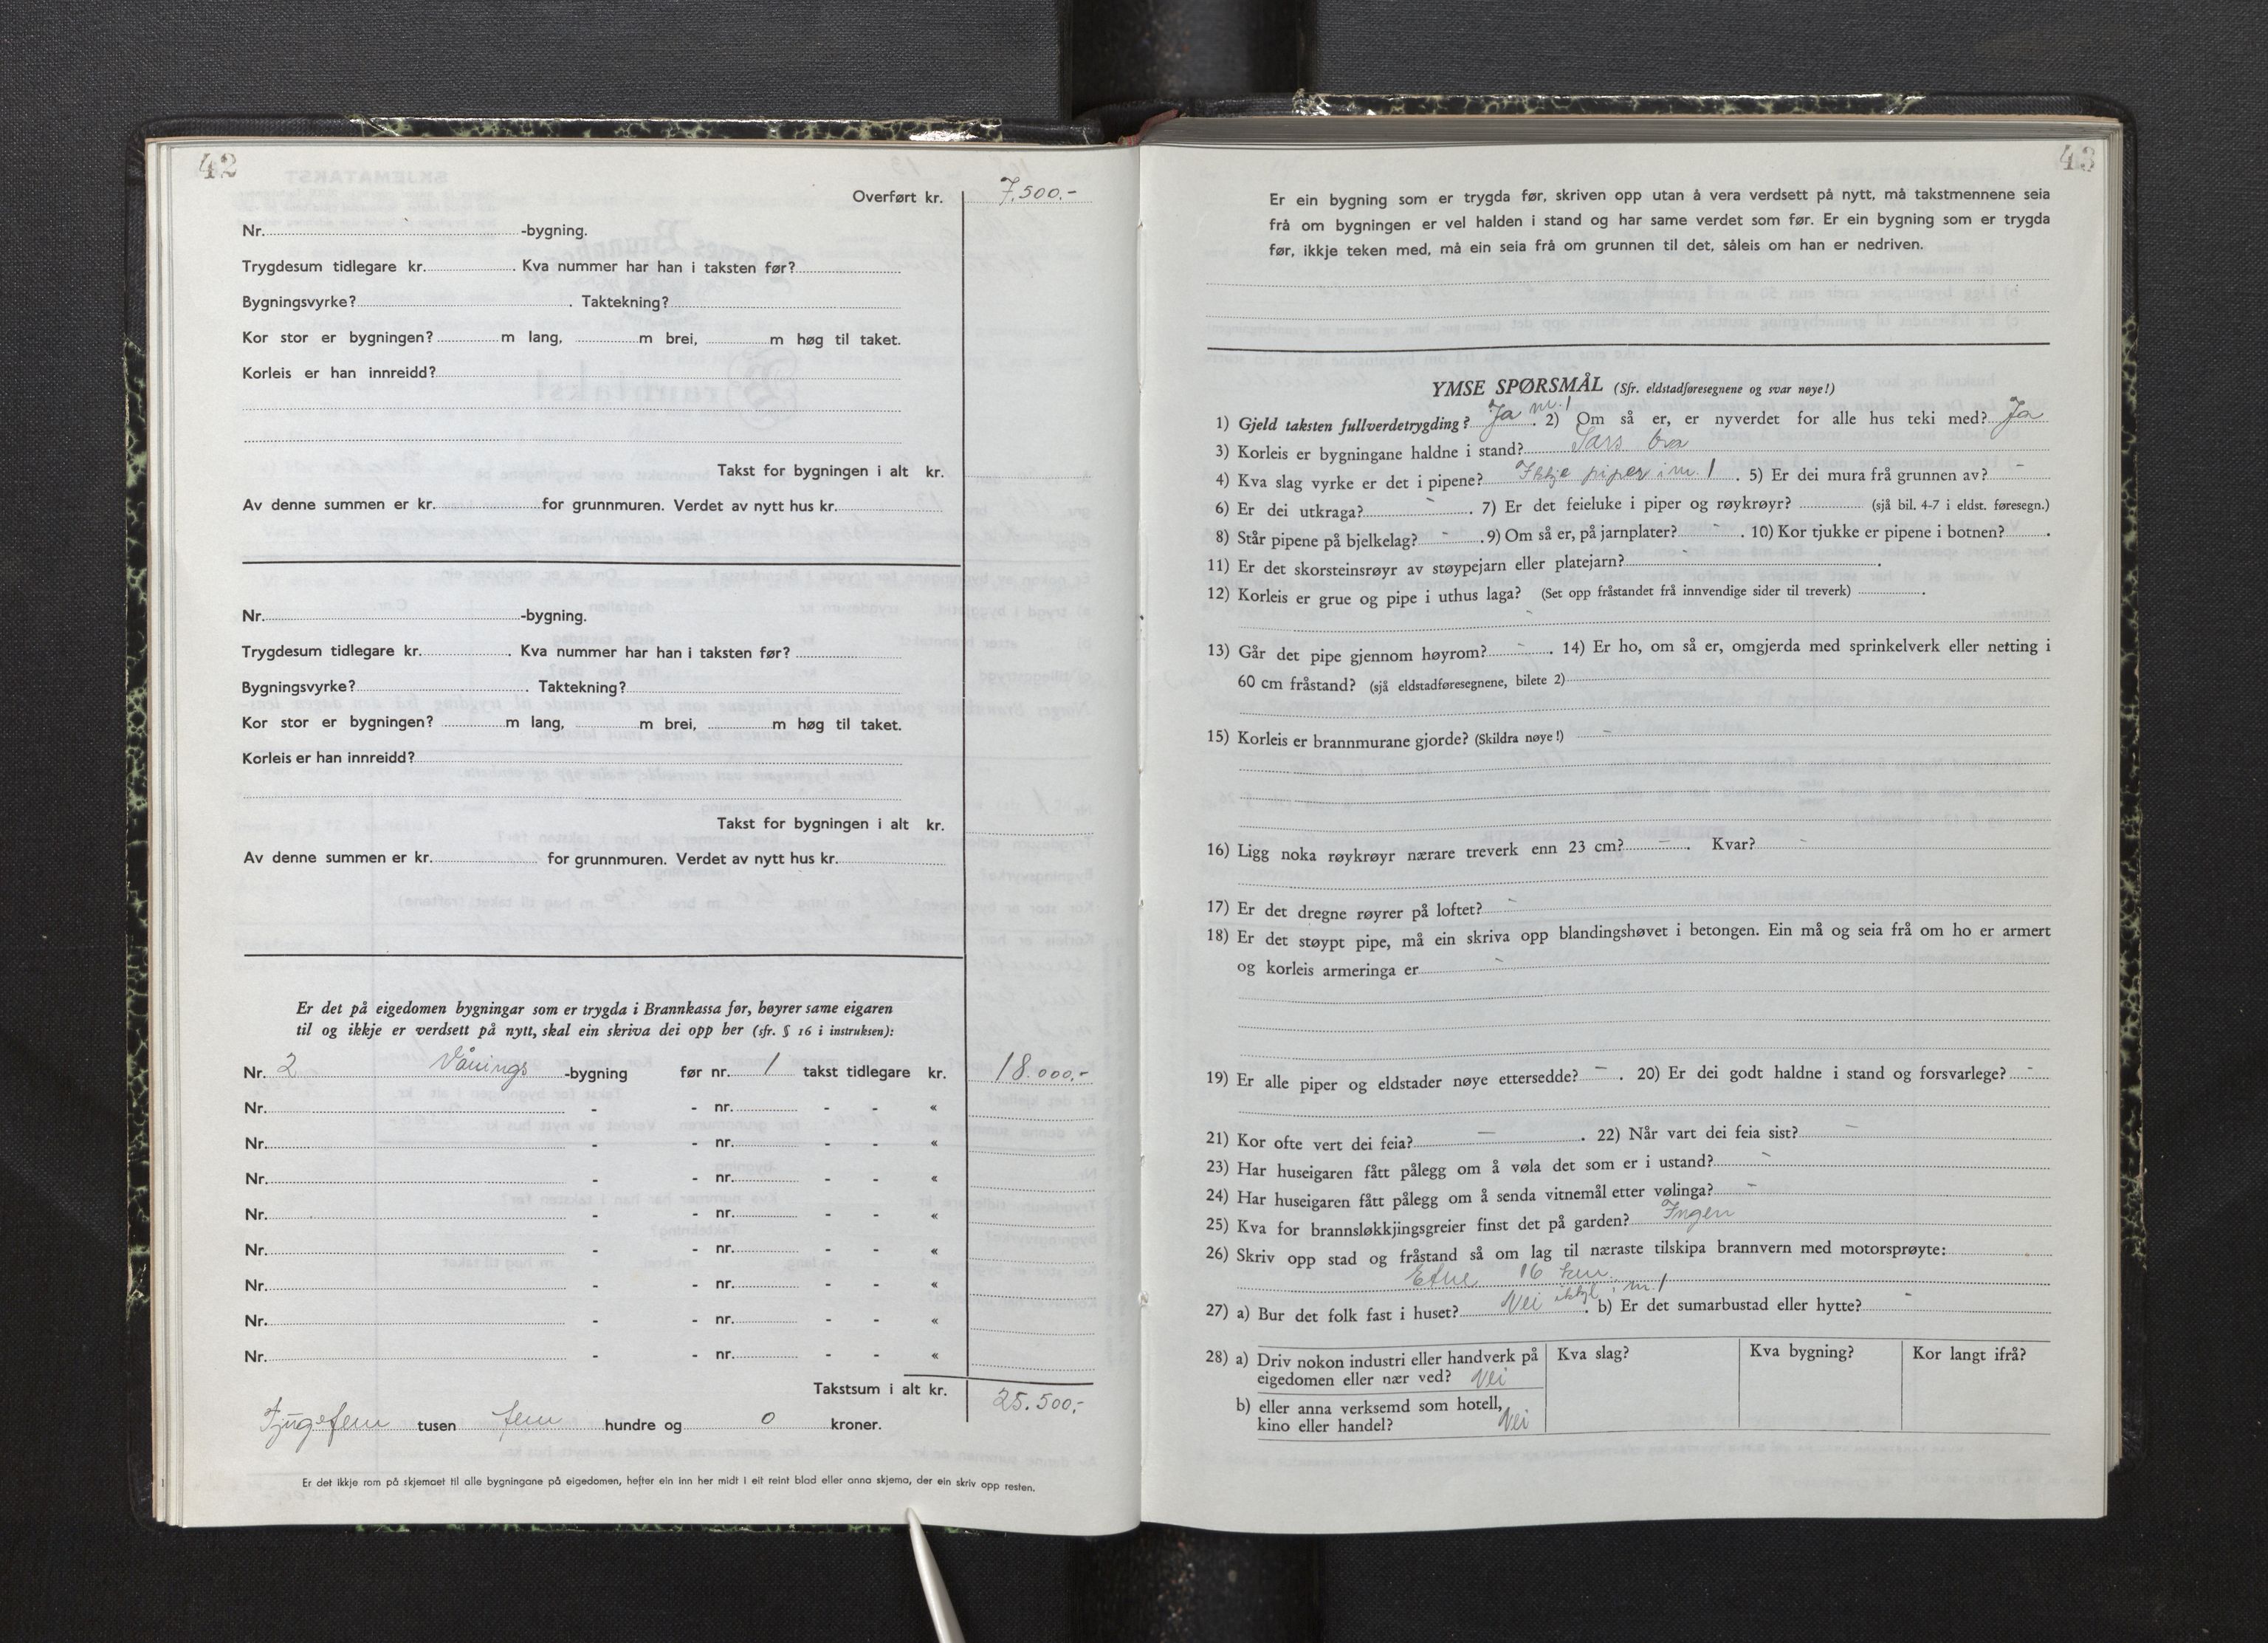 42
Overført kr. 7.500.-
Nr. -bygning.
Trygdesum tidlegare kr. . Kva nummer har han i taksten før?
Bygningsvyrke? . Taktekning?
Kor stor er bygningen? m lang, m brei, m høg til taket.
Korleis er han innreidd?
Takst for bygningen i alt kr.
Av denne summen er kr. for grunnmuren. Verdet av nytt hus kr.
Nr. -bygning.
Trygdesum tidlegare kr. . Kva nummer har han i taksten før?
Bygningsvyrke? . Taktekning?
Kor stor er bygningen? m lang, m brei, m høg til taket.
Korleis er han innreidd?
Takst for bygningen i alt kr.
Av denne summen er kr. for grunnmuren. Verdet av nytt hus kr.
Er det på eigedomen bygningar som er trygda i Brannkassa før, høyrer same eigaren
til og ikkje er verdsett på nytt, skal ein skriva dei opp her (sfr. § 16 i instruksen):
Nr. 2 Vånings -bygning før nr. 1 takst tidlegare kr. 18.000,-
Nr. - - nr. - - «
Nr. - - nr. - - «
Nr. - - nr. - - «
Nr. - - nr. - - «
Nr. - - nr. - - «
Nr. - - nr. - - «
Nr. - - nr. - - «
Nr. - - nr. - - «
Takstsum i alt kr. 25.500,-
Tjugefem tusen fem hundre og 0 kroner.
Er det ikkje rom på skjemaet til alle bygningane på eigedomen, hefter ein inn her midt i eit reint blad eller anna skjema, der ein skriv opp resten.
43
Er ein bygning som er trygda før, skriven opp utan å vera verdsett på nytt, må takstmennene seia
frå om bygningen er vel halden i stand og har same verdet som før. Er ein bygning som er trygda
før, ikkje teken med, må ein seia frå om grunnen til det, såleis om han er nedriven.
YMSE SPØRSMÅL (Sfr. eldstadføresegnene og svar nøye!)
1) Gjeld taksten fullverdetrygding? Ja nr. 1. 2) Om så er, er nyverdet for alle hus teki med? Ja
3) Korleis er bygningane haldne i stand? Sars bra
4) Kva slag vyrke er det i pipene? Ikkje piper i nr. 1. 5) Er dei mura frå grunnen av? -
6) Er dei utkraga? - . 7) Er det feieluke i piper og røykrøyr? (sjå bil. 4-7 i eldst. føresegn.)
8) Står pipene på bjelkelag? - . 9) Om så er, på jarnplater? - . 10) Kor tjukke er pipene i botnen? .
11) Er det skorsteinsrøyr av støypejarn eller platejarn? - .
12) Korleis er grue og pipe i uthus laga? (Set opp fråstandet frå innvendige sider til treverk) .
-
13) Går det pipe gjennom høyrom? - . 14) Er ho, om så er, omgjerda med sprinkelverk eller netting i
60 cm fråstand? (sjå eldstadføresegnene, bilete 2) -
15) Korleis er brannmurane gjorde? (Skildra nøye!) -
16) Ligg noka røykrøyr nærare treverk enn 23 cm? - . Kvar? -
17) Er det dregne røyrer på loftet? -
18) Er det støypt pipe, må ein skriva opp blandingshøvet i betongen. Ein må og seia frå om ho er armert
og korleis armeringa er -
19) Er alle piper og eldstader nøye ettersedde? - . 20) Er dei godt haldne i stand og forsvarlege? -
21) Kor ofte vert dei feia? - . 22) Når vart dei feia sist? -
23) Har huseigaren fått pålegg om å vøla det som er i ustand? -
24) Har huseigaren fått pålegg om å senda vitnemål etter vølinga? -
25) Kva for brannsløkkjingsgreier finst det på garden? Ingen
26) Skriv opp stad og fråstand så om lag til næraste tilskipa brannvern med motorsprøyte:
Etne 16 km.
27) a) Bur det folk fast i huset? Nei ikkje i nr. 1. b) Er det sumarbustad eller hytte? -
28) a) Driv nokon industri eller handverk på Kva slag? Kva bygning? Kor langt ifrå?
eigedomen eller nær ved? Nei
b) eller anna verksemd som hotell,
kino eller handel? Nei